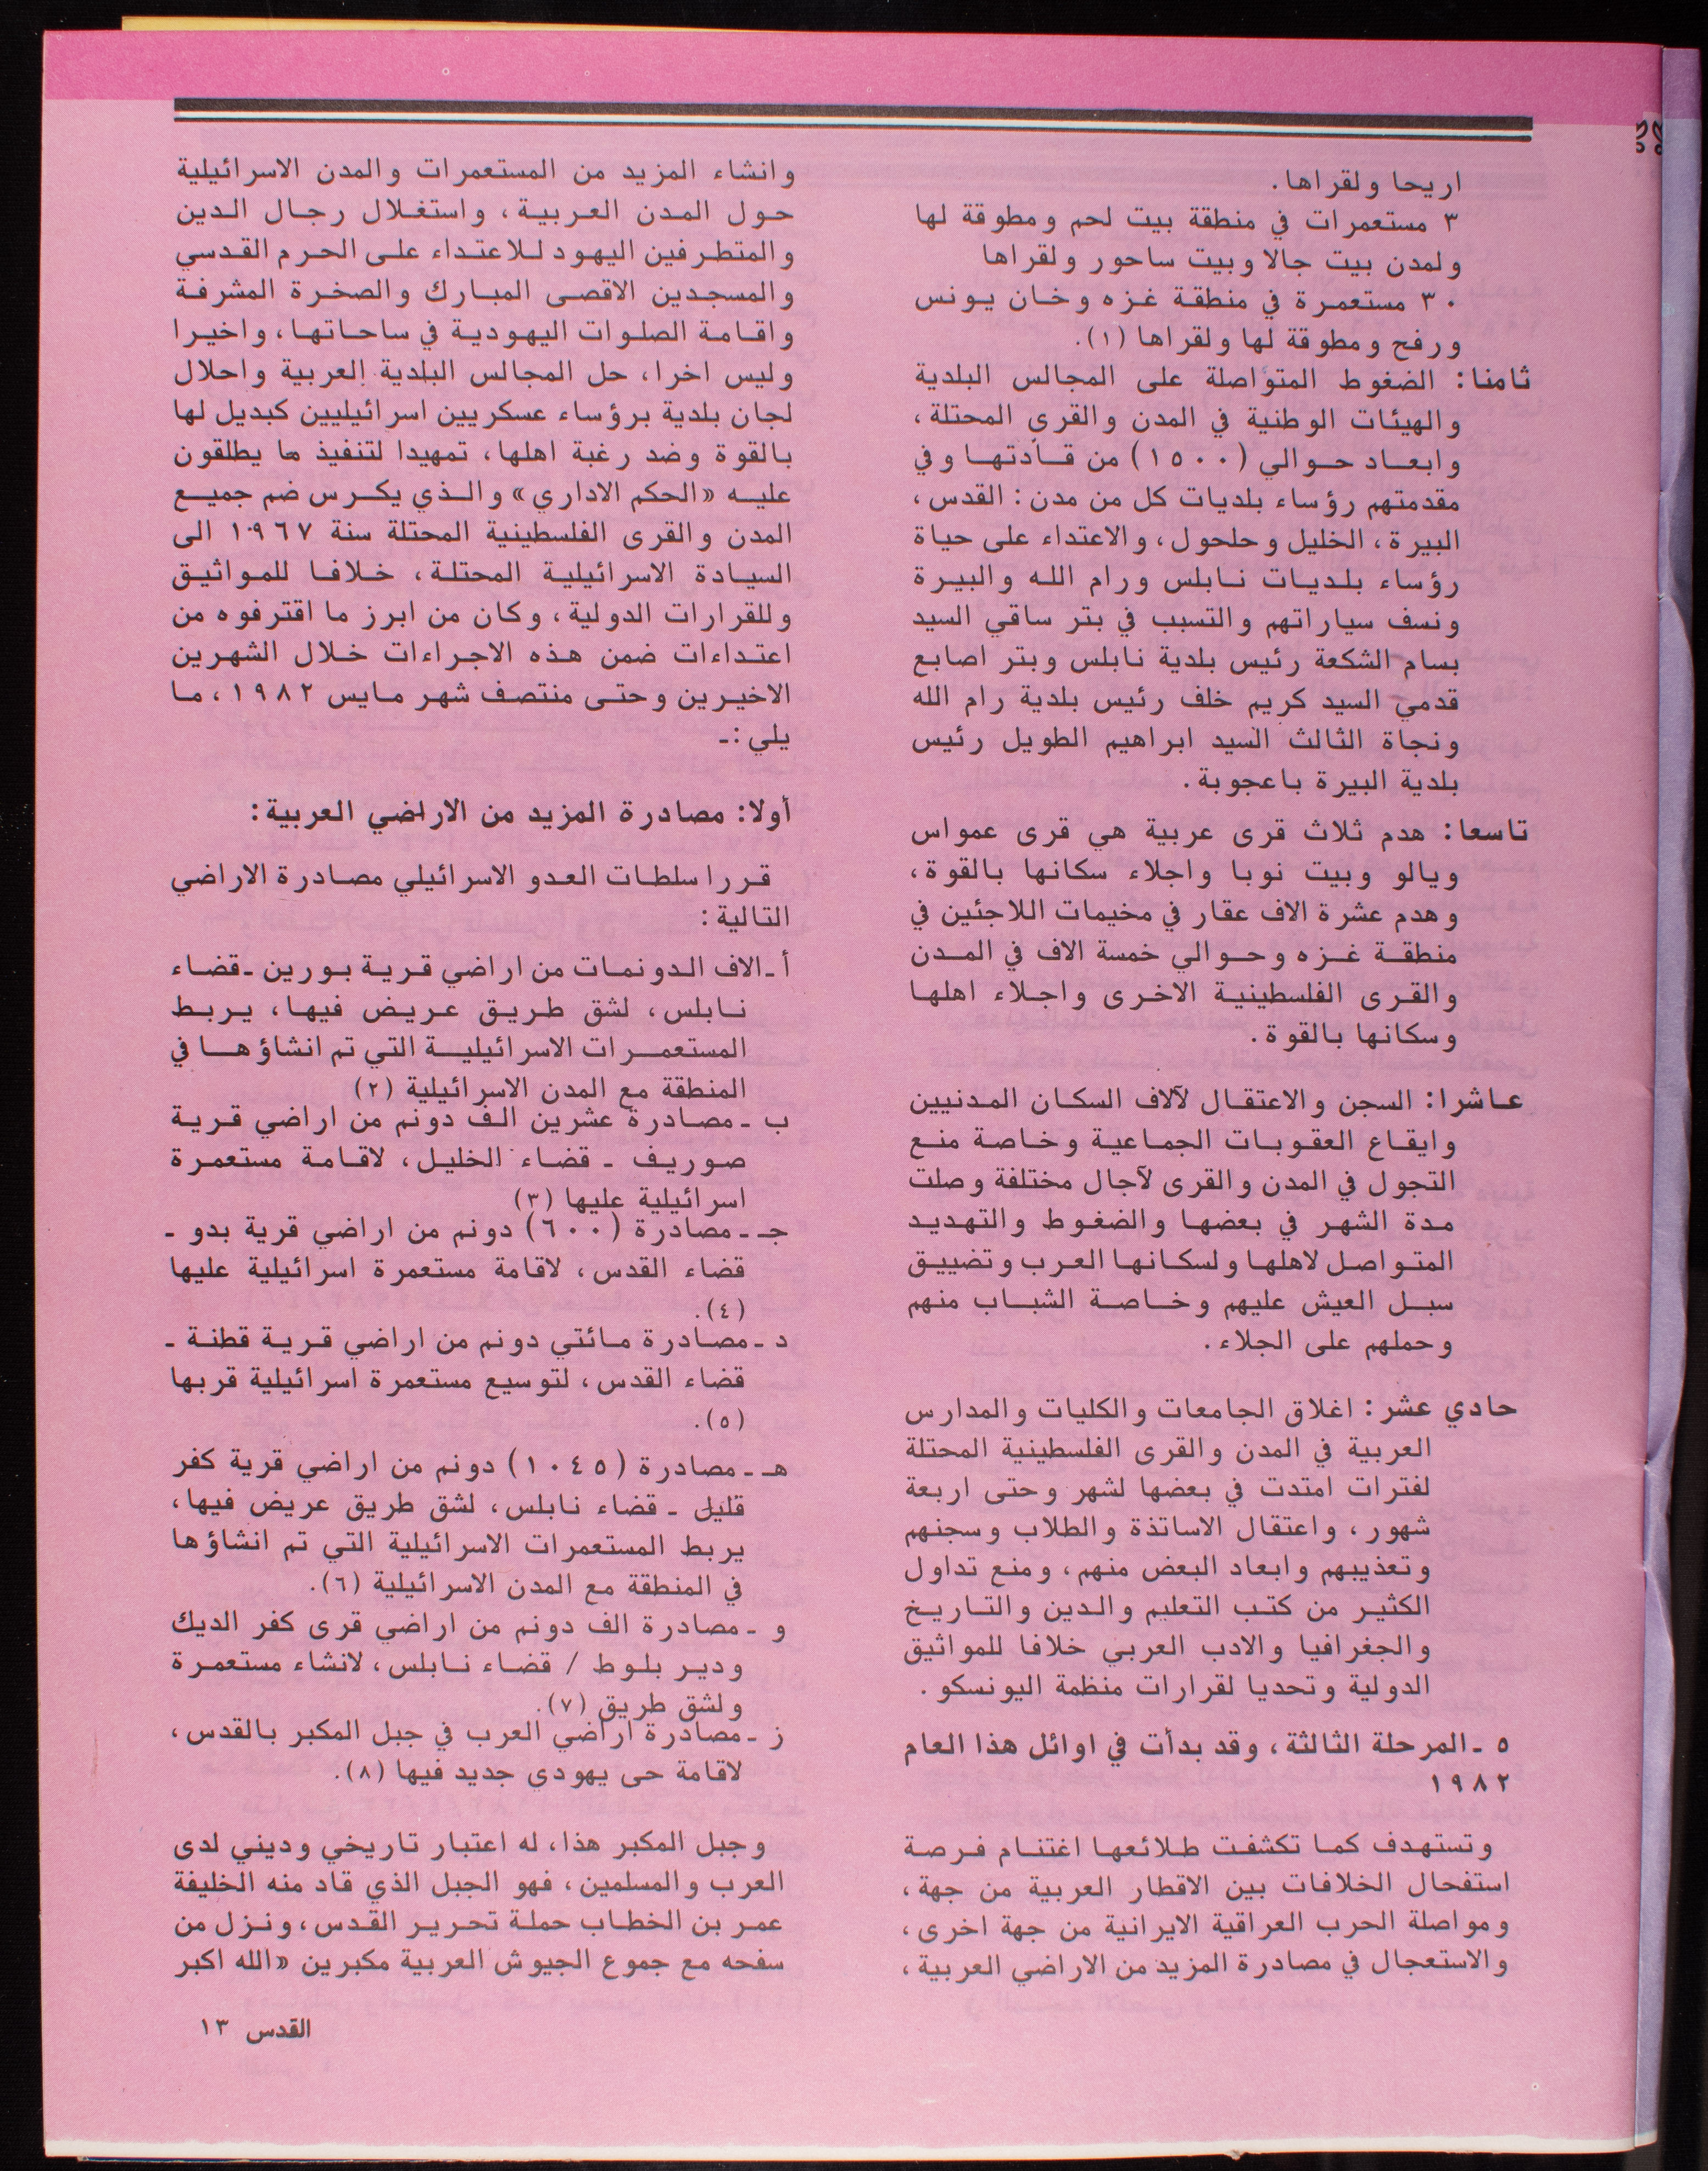 اريحا ولقراها.
٣ مستعمرات في منطقة بيت لحم ومطوقة لها
ولمدن بيت جالا وبيت ساحور ولقراها
٣٠ مستعمرة في منطقة غزه وخان يونس
ورفح ومطوقة لها ولقراها (١).
ثامنا: الضغوط المتواصلة على المجالس البلدية
والهيئات الوطنية في المدن والقرى المحتلة،
وابعاد حوالي (١٥٠٠) من قادتها وفي
مقدمتهم رؤساء بلديات كل من مدن: القدس،
البيرة، الخليل وحلحول، والاعتداء على حياة
رؤساء بلديات نابلس ورام الله والبيرة
ونسف سياراتهم والتسبب في بتر ساقي السيد
بسام الشكعة رئيس بلدية نابلس وبتر اصابع
قدمي السيد كريم خلف رئيس بلدية رام الله
ونجاة الثالث السيد ابراهيم الطويل رئيس
بلدية البيرة باعجوبة.
تاسعا: هدم ثلاث قرى عربية هي قرى عمواس
ويالو وبيت نوبا واجلاء سكانها بالقوة،
وهدم عشرة الاف عقار في مخيمات اللاجئين في
منطقة غزه وحوالي خمسة الاف في المدن
والقرى الفلسطينية الاخرى واجلاء اهلها
وسكانها بالقوة.
عاشرا: السجن والاعتقال لآلاف السكان المدنيين
وايقاع العقوبات الجماعية وخاصة منع
التجول في المدن والقرى لآجال مختلفة وصلت
مدة الشهر في بعضها والضغوط والتهديد
المتواصل لاهلها ولسكانها العرب وتضييق
سبل العيش عليهم وخاصة الشباب منهم
وحملهم على الجلاء.
حادي عشر: اغلاق الجامعات والكليات والمدارس
العربية في المدن والقرى الفلسطينية المحتلة
لفترات امتدت في بعضها لشهر وحتى اربعة
شهور، واعتقال الاساتذة والطلاب وسجنهم
وتعذيبهم وابعاد البعض منهم، ومنع تداول
الكثير من كتب التعليم والدين والتاريخ
والجغرافيا والادب العربي خلافا للمواثيق
الدولية وتحديا لقرارات منظمة اليونسكو.
٥ ـ المرحلة الثالثة، وقد بدأت في اوائل هذا العام
١٩٨٢
وتستهدف كما تكشفت طلائعها اغتنام فرصة
استفحال الخلافات بين الاقطار العربية من جهة،
ومواصلة الحرب العراقية الايرانية من جهة اخرى،
والاستعجال في مصادرة المزيد من الاراضي العربية،
وانشاء المزيد من المستعمرات والمدن الاسرائيلية
حول المدن العربية، واستغلال رجال الدين
والمتطرفين اليهود للاعتداء على الحرم القدسي
والمسجدين الاقصى المبارك والصخرة المشرفة
واقامة الصلوات اليهودية في ساحاتها، واخيرا
وليس اخرا، حل المجالس البلدية العربية واحلال
لجان بلدية برؤساء عسكريين اسرائيليين كبديل لها
بالقوة وضد رغبة اهلها، تمهيدا لتنفيذ ما يطلقون
عليه «الحكم الاداري» والذي يكرس ضم جميع
المدن والقرى الفلسطينية المحتلة سنة ١٩٦٧ الى
السيادة الاسرائيلية المحتلة، خلافا للمواثيق
وللقرارات الدولية، وكان من ابرز ما اقترفوه من
اعتداءات ضمن هذه الاجراءات خلال الشهرين
الاخيرين وحتى منتصف شهر مايس ١٩٨٢، ما
يلي:ـ
أولا: مصادرة المزيد من الاراضي العربية:
قررا سلطات العدو الاسرائيلي مصادرة الاراضي
التالية:
أ ـ الاف الدونمات من اراضي قرية بورين ـ قضاء
نابلس، لشق طريق عريض فيها، يربط
المستعمرات الاسرائيلية التي تم انشاؤها في
المنطقة مع المدن الاسرائيلية (٢)
ب ـ مصادرة عشرين الف دونم من اراضي قرية
صوريف ـ قضاء الخليل، لاقامة مستعمرة
اسرائيلية عليها (٣)
جـ ـ مصادرة (٦٠٠) دونم من اراضي قرية بدو ـ
قضاء القدس، لاقامة مستعمرة اسرائيلية عليها
(٤).
د ـ مصادرة مائتي دونم من اراضي قرية قطنة ـ
قضاء القدس، لتوسيع مستعمرة اسرائيلية قربها
(٥).
هـ ـ مصادرة (١٠٤٥) دونم من اراضي قرية كفر
قليل ـ قضاء نابلس، لشق طريق عريض فيها،
يربط المستعمرات الاسرائيلية التي تم انشاؤها
في المنطقة مع المدن الاسرائيلية (٦).
و ـ مصادرة الف دونم من اراضي قرى كفر الديك
ودير بلوط / قضاء نابلس، لانشاء مستعمرة
ولشق طريق (٧).
ز ـ مصادرة اراضي العرب في جبل المكبر بالقدس،
لاقامة حى يهودي جديد فيها (٨).
وجبل المكبر هذا، له اعتبار تاريخي وديني لدى
العرب والمسلمين، فهو الجبل الذي قاد منه الخليفة
عمر بن الخطاب حملة تحرير القدس، ونزل من
سفحه مع جموع الجيوش العربية مكبرين «الله اكبر
القدس ١٣